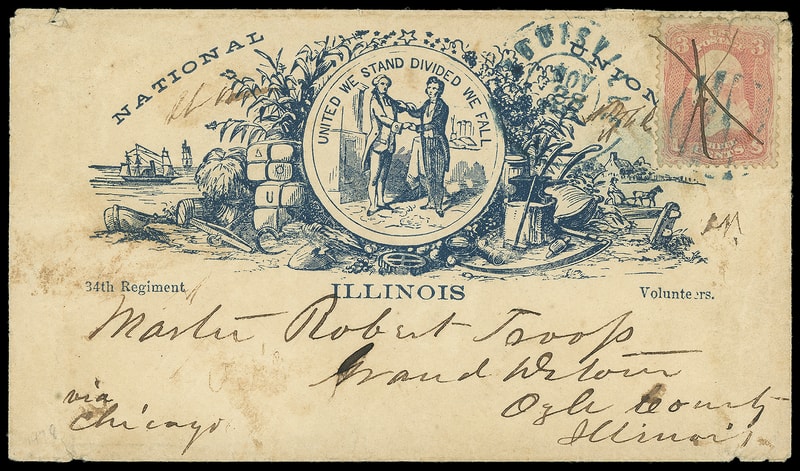 NATIONAL UNION
UNITED WE STAND DIVIDED WE FALL
A
U
NOV
28
3 3
34th Regiment ILLINOIS Volunteers.
Master Robert Troop
Grand Detour
Ogle County
Illinois
via
Chicago